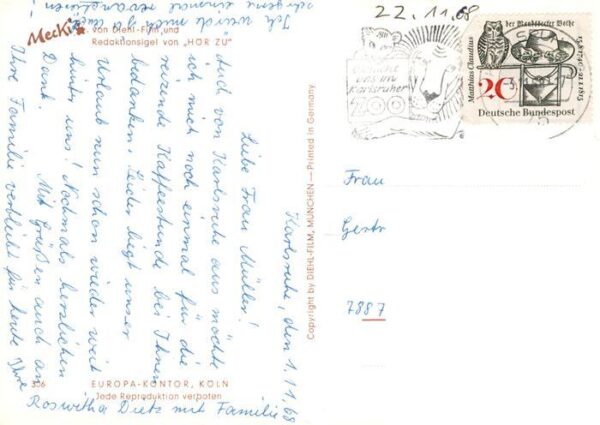 22.11.68
Mecki
von Diehl-Film und
Redaktionsigel von „HÖR ZU"
Besucht
uns im
Karlsruher
ZOO
Matthias Claudius
der Wandsbecker Bothe
15.8.1740 - 21.1.1815
20
Deutsche Bundespost
Karlsruhe, den 1.11.68
Liebe Frau Müller!
Auch von Karlsruhe aus möchte
ich mich noch einmal für die
reizende Kaffeestunde bei Ihnen
bedanken. Leider liegt unser
Urlaub nun schon wieder weit
hinter uns! Nochmals herzlichen
Dank. Mit Grüßen auch an
Ihre Familie verbleibt für heute Ihre
Roswitha Dietz mit Familie
Ich werde mich ja auch
gerne einmal revanchieren
Copyright by DIEHL-FILM, MÜNCHEN — Printed in Germany
Frau
Gertr
7887
306
EUROPA-KONTOR, KÖLN
Jede Reproduktion verboten